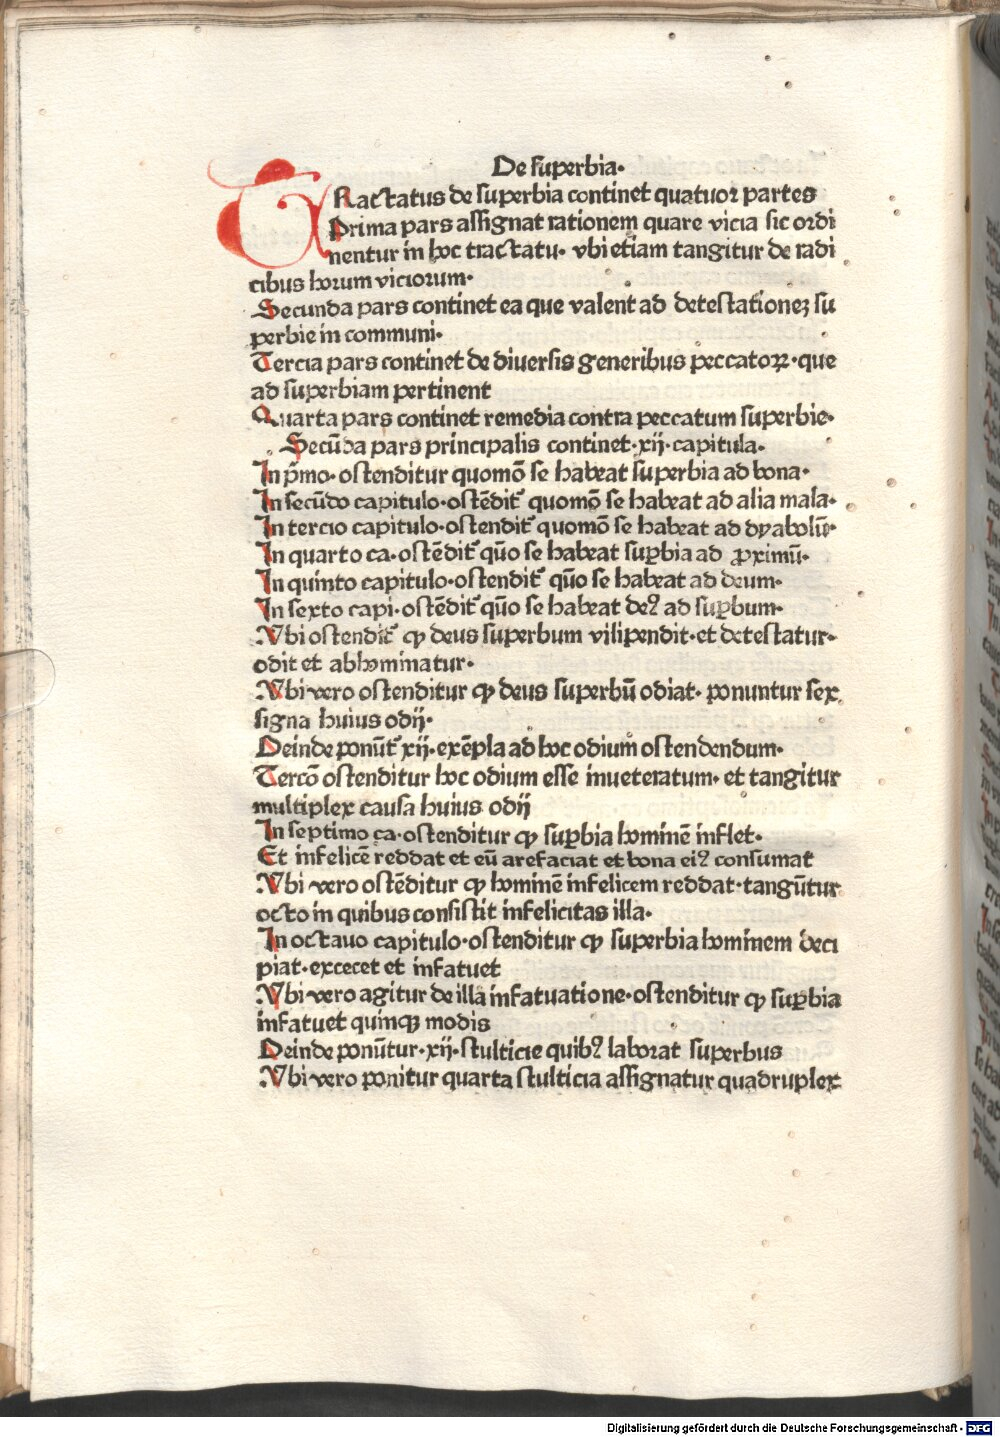 De superbia·
TRactatus de superbia continet quatuor partes
Prima pars assignat rationem quare vicia sic ordi
nentur in hoc tractatu· vbi etiam tangitur de radi
cibus horum viciorum·
Secunda pars continet ea que valent ad detestationeꝫ su
perbie in communi·
Tercia pars continet de diuersis generibus peccatoꝝ·que
ad superbiam pertinent
Quarta pars continet remedia contra peccatum superbie·
Secūda pars principalis continet·xij·capitula·
In p̄mo·ostenditur quomō se habeat superbia ad bona·
In secūdo capitulo·ostēdit᷑ quomō se habeat ad alia mala·
In tercio capitulo·ostendit᷑ quomō se habeat ad dyabolū·
In quarto ca·ostēdit᷑ qūo se habeat suꝑbia ad ꝓximū·
In quinto capitulo·ostendit᷑ qūo se habeat ad deum·
In sexto capi·ostēdit᷑ qūo se habeat deꝰ ad suꝑbum·
Vbi ostendit᷑ ꝙ deus superbum vilipendit·et detestatur·
odit et abhominatur·
Vbi vero ostenditur ꝙ deus superbū odiat· ponuntur sex
signa huius odij·
Deinde ponūt᷑ xij·exēpla ad hoc odium ostendendum·
Tercō ostenditur hoc odium esse inueteratum· et tangitur
multiplex causa huius odij
In septimo ca·ostenditur ꝙ suꝑbia hominē inflet·
Et infelicē reddat et eū arefaciat et bona eiꝰ consumat
Vbi vero ostēditur ꝙ hominē infelicem reddat·tangūtur
octo in quibus consistit infelicitas illa·
In octauo capitulo·ostenditur ꝙ superbia hominem deci
piat·excecet et infatuet
Vbi vero agitur de illa infatuatione·ostenditur ꝙ suꝑbia
infatuet quinqꝫ modis
Deinde ponūtur·xij·stulticie quibꝰ laborat superbus
Vbi vero ponitur quarta stulticia assignatur quadruplex
Digitalisierung gefördert durch die Deutsche Forschungsgemeinschaft - DFG